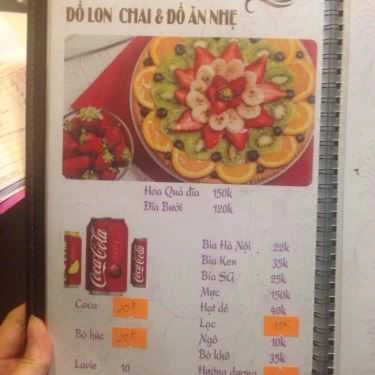 ĐỒ LON CHAI & ĐỒ ĂN NHẸ
Hoa Quả đĩa 150k
Đĩa Bưởi 120k
Coca-Cola
Coca-Cola
Bia Hà Nội 22k
Bia Ken 35k
Bia SG 25k
Mực 150k
Coca
Hạt dẻ 40k
Lạc
Bò húc
Ngô 10k
Bò khô 35k
Lavie 10
Hướng dương